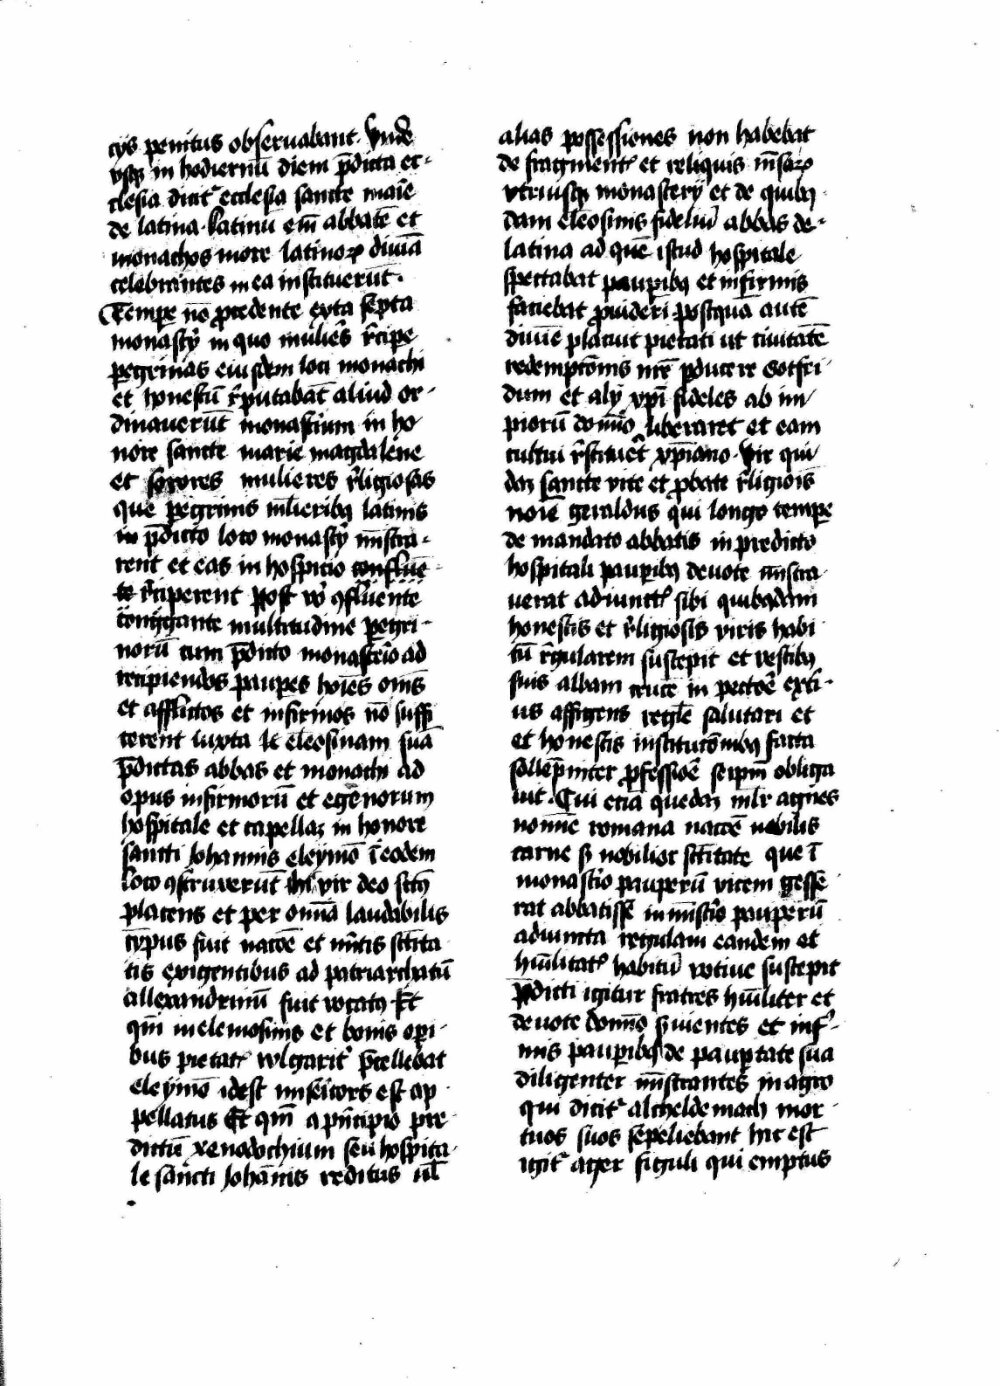 cijs penitus obseruabant. Vnde
vsq in hodiernū diem p̄dicta ec-
clesia dicit̉ ecclesia sancte marie
de latina. Latinū em̄ abbatē et
monachos more latinoꝝ diuīa
celebrantes in ea instituerūt.
Tempe nō procedente exta septa
monastij in quo mulieres recipe
pegrinas eiusdem loci monachi
et honestū r̄putabāt aliud or-
dinauerūt monastium in ho
nore sancte marie magdalene
et sorores mulieres r̄ligiosas
que pegrinis mlieribꝫ latinis
in p̄dicto loco monastij mīstra-
rent et eas in hospicio
reciperent Post vo ꝯfluente
multitudine pegri-
norū cum p̄dicto monasterio ad
recipiendos paupes hoīes oīns
et afflictos et infirmos nō suffi
cerent iuxta eleosinam suā
p̄dictas abbas et monachi ad
opus infirmorū et egenorum
hospitale et capellaꝫ in honore
sancti Johannis eleymō ī eodem
loco ꝯstruxerūt vir deo
placens et per omīa laudabilis
cypus fuit nacōe et sctīta
tis exigentibus ad patriarchatū
allexandrinū fuit vocatꝰ Et
qm̄ in elemosinis et bonis opi-
bus pietat̉ wlgarit̉ p̄cellebat
eleymō idest misēicors est ap
pellatus Et qm̄ a pn̄cipio pre
dictū xenodochium seu hospita-
le sancti Johānis reditus ul̄
alias possessiones non habebat
de fragment̉ et reliquis mīsaꝝ
vtriusqꝫ monasterij et de quibꝫ
dam eleosinis fideliū abbas de-
latina ad quē istud hospitale
spectabat paupibꝫ et infirmis
faciebat prouideri postqua autē
diuīe placuit pietati ut ciuitatē
redemptōnis nrē pducere Gotfri-
dum et alij xpī fideles ab im
piorū domīo liberaret et eam
cultui r̄stitueret xp̄iano. Vir qui
daꝫ sancte vite et pbate r̄ligiois
noīe geraldus qui longo tempe
de mandato abbatis in predicto
hospitali paupibꝫ deuote mīstra
uerat adiunct̉ sibi quibꝫdam
honestis et r̄ligiosis viris habi
tū r̄gularem suscepit et vestibꝫ
suis albam cruce in pectoē exti-
us affigens regle salutari et
et honestis institutōnibꝫ facta
sollepniter pfessioē seipm̄ obliga
uit. Cui etiā quedaꝫ mlr agnes
nomīe romana nacōe nobilis
carne sꝫ nobilior sctītate que ī
monastio pauperū vicem gesse
rat abbatisse in mīstio pauperū
adiuncta regulam eandem et
hūilitat̉ habitū votiue suscepit
p̄dicti igitur fratres hūiliter et
deuote domīo suientes et infi-
mis paupibꝫ de paupertate sua
diligenter mīstrantes in agro
qui dicit̉ alcheldemach mor-
tuos suos sepeliebant hic est
igit̉ ager figuli qui emptus